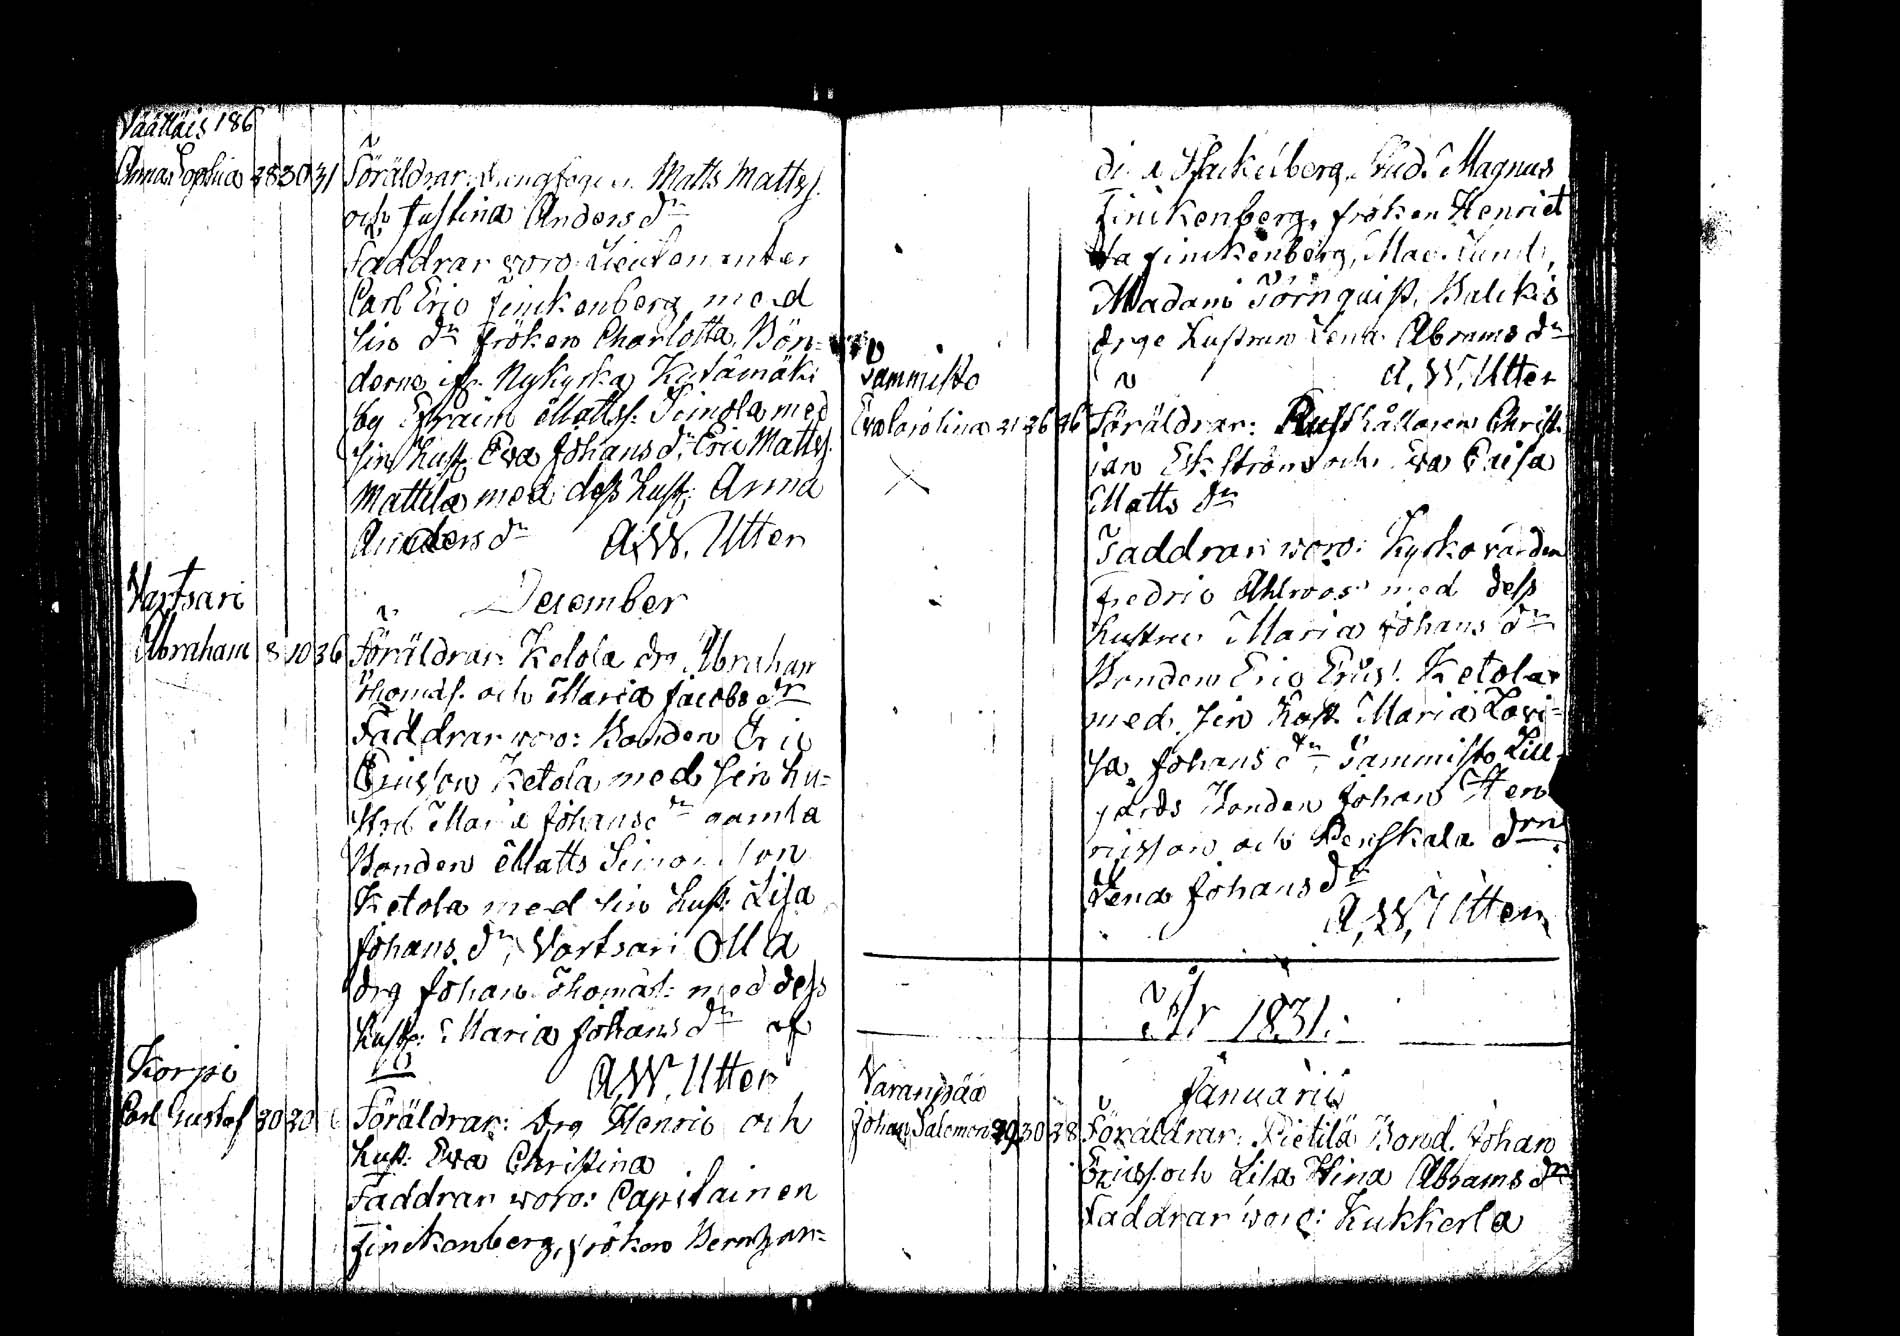 Wäättäis 186
Anna Sophia 28 30 31 Föräldrar: Matts Mattss.
och Justina Anders dr
Faddrar woro: Lieutenanten
Carl Eric Finckenberg med
sin dr fröken Charlotta, Bön=
derne ifr. Nykyrka Kutämäki
by Efraim Mattss. Simola med
sin hust. Eva Johans dr Eric Mattss.
Mattila med dess hust: Anna
Anders dr A.W. Utter
Vartsari
December
Abraham 8 10 36 Föräldrar: Ketola drg Abraham
Thomas. och Maria Jacobs dr
Faddrar woro: Bonden Eric
Ericsson Ketola med sin hu=
stru Maria Johans dr gamla
Bonden Matts Simonsson
Ketola med sin hust: Lisa
Johans dr, Vartsari
drg Johan Thomas: med dess
hust: Maria Johans dr
A.W. Utter
Korpi
Carl Gustaf 20 20 Föräldrar: Drg Henric och
hust: Eva Christina
Faddrar woro: Capitainen
Finckenberg, fröken Bernhar=
dina Stackelberg, Stud. Magnus
Finckenberg, fröken Henriet
ta Finckenberg, Lund,
Madam Törnquist,
drge hustrun Lena Abrams dr
A.W. Utter
Sammisto
Eva Carolina 21 26 26 Föräldrar: Rusthållaren Christ
ian Ekström och Eva Caisa
Matts dr
Faddrar woro: Kyrkovärden
Fredric Ahlroos med dess
hustru Maria Johans dr
Bonden Eric Erics. Ketola
med sin hust. Maria Lovi=
sa Johans dr, Sammisto Lill
gårds Bonden Johan Hen
ricsson och Penskala drn
Lena Johans dr
A.W. Utter
År 1831.
Januarii
Varanpää
Johan Salomon 29 30 28 Föräldrar: Pietilä Bond. Johan
Ericss. och Lisa Stina Abrams dr
Faddrar woro: Kukkerla